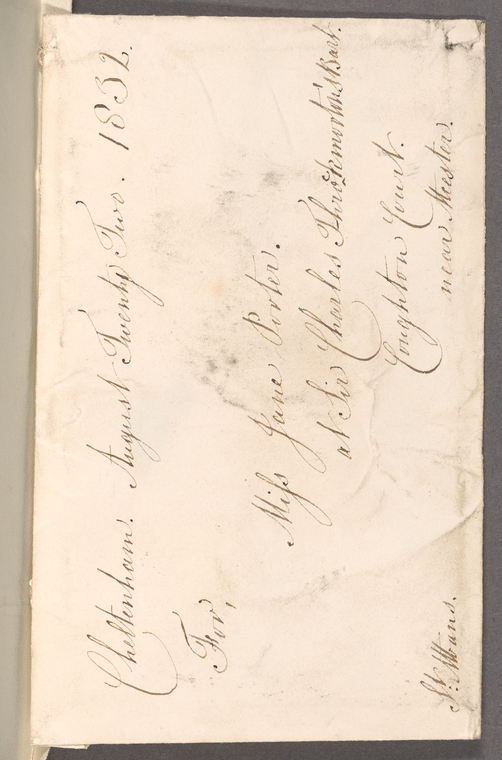 Cheltenham. August Twenty Two. 1832.
For,
Miſs Jane Porter.
at Sir Charles Throckmorton's Bart.
Coughton Court.
near Alcester.
St. Albans.